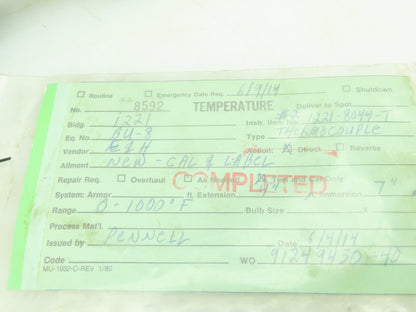 ☐ Routine ☐ Emergency Date Req. 6/9/14 ☐ Shutdown
No. 8592 TEMPERATURE Deliver to Spot
Bldg. 1221 Instr. Item No. #2 1221-8044-T
Eq. No. BU-8 Type THERMOCOUPLE
Vendor E&H Action: ☒ Direct ☐ Reverse
Ailment NEW - CAL & LABEL
COMPLETED
Repair Req. ☐ Overhaul ☐ As Needed ☒ Test and Cal Only
System: Armor ft. Extension Immersion 7"
Range 0-1000°F Bulb Size X
Process Mat'l.
Issued by PENNELL Date 6/4/14
Code WO 91249430-40
MU-1932-C-REV 1/80